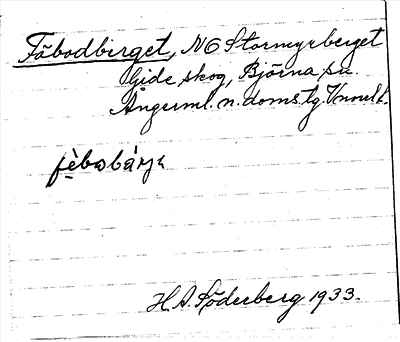 Fäbodbirget, NO Stormyrberget
Gide skog, Björna sn.
Ångerml. n. doms. tg. V norrl. l.
fèbobárjɛ
H. A. Söderberg 1933.